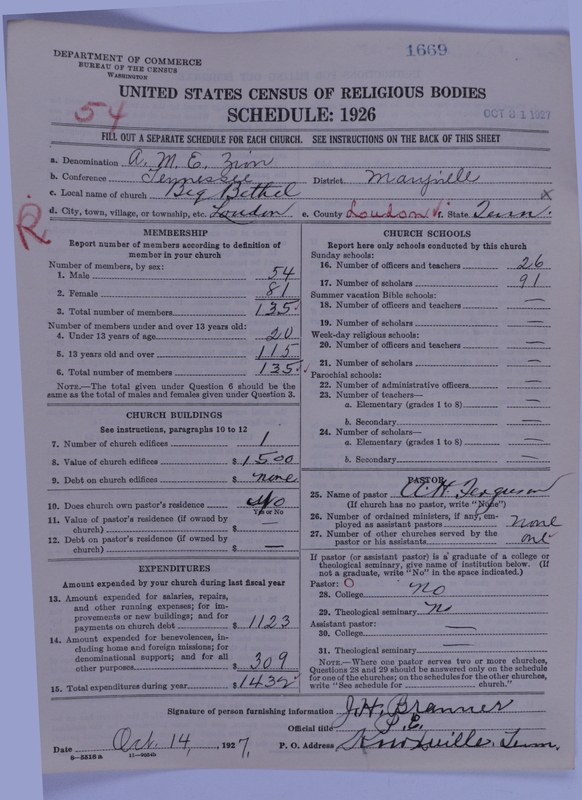 1669
DEPARTMENT OF COMMERCE
BUREAU OF THE CENSUS
WASHINGTON
UNITED STATES CENSUS OF RELIGIOUS BODIES
54
SCHEDULE: 1926
OCT 31 1927
FILL OUT A SEPARATE SCHEDULE FOR EACH CHURCH. SEE INSTRUCTIONS ON THE BACK OF THIS SHEET
a. Denomination A. M. E. Zion
b. Conference Tennessee District Maryville
c. Local name of church Big Bethel x
d. City, town, village, or township, etc. Loudon e. County Loudon f. State Tenn.
R
MEMBERSHIP
Report number of members according to definition of member in your church
Number of members, by sex:
1. Male 54
2. Female 81
3. Total number of members 135
Number of members under and over 13 years old:
4. Under 13 years of age 20
5. 13 years old and over 115
6. Total number of members 135
NOTE.—The total given under Question 6 should be
the same as the total of males and females given under Question 3.
CHURCH BUILDINGS
See instructions, paragraphs 10 to 12
7. Number of church edifices 1
8. Value of church edifices $1500
9. Debt on church edifices $ none
10. Does church own pastor's residence No
Yes or No
11. Value of pastor's residence (if owned by
church) $ —
12. Debt on pastor's residence (if owned by
church) $ —
EXPENDITURES
Amount expended by your church during last fiscal year
13. Amount expended for salaries, repairs,
and other running expenses; for im-
provements or new buildings; and for
payments on church debt $1123
14. Amount expended for benevolences, in-
cluding home and foreign missions; for
denominational support; and for all
other purposes $309
15. Total expenditures during year $1432
CHURCH SCHOOLS
Report here only schools conducted by this church
Sunday schools:
16. Number of officers and teachers 26
17. Number of scholars 91
Summer vacation Bible schools:
18. Number of officers and teachers —
19. Number of scholars —
Week-day religious schools:
20. Number of officers and teachers —
21. Number of scholars —
Parochial schools:
22. Number of administrative officers —
23. Number of teachers—
a. Elementary (grades 1 to 8) —
b. Secondary —
24. Number of scholars—
a. Elementary (grades 1 to 8) —
b. Secondary —
PASTOR
25. Name of pastor Ferguson
(If church has no pastor, write "None")
26. Number of ordained ministers, if any, em-
ployed as assistant pastors none
27. Number of other churches served by the
pastor or his assistants one
If pastor (or assistant pastor) is a graduate of a college or
theological seminary, give name of institution below. (If
not a graduate, write "No" in the space indicated.)
Pastor: O
28. College no
29. Theological seminary n
Assistant pastor:
30. College —
31. Theological seminary —
NOTE.—Where one pastor serves two or more churches,
Questions 28 and 29 should be answered only on the schedule
for one of the churches; on the schedules for the other churches,
write "See schedule for ______ church."
Signature of person furnishing information J. H. Branner
Official title P. E.
Date Oct. 14, 1927, P. O. Address Knoxville, Tenn.
8—5518 a